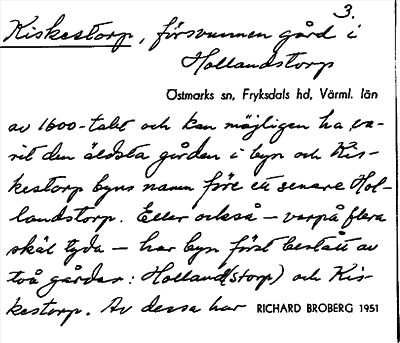 3.
Kiskestorp, försvunnen gård i
Hollandstorp
Östmarks sn, Fryksdals hd, Värml. län
av 1600-talet och kan möjligen ha va-
rit den äldsta gården i byn och Kis-
kestorp byns namn före ett senare Hol-
landstorp. Eller också – varpå flera
skäl tyda – har byn först bestått av
två gårdar: Holland(storp) och Kis-
kestorp. Av dessa har RICHARD BROBERG 1951